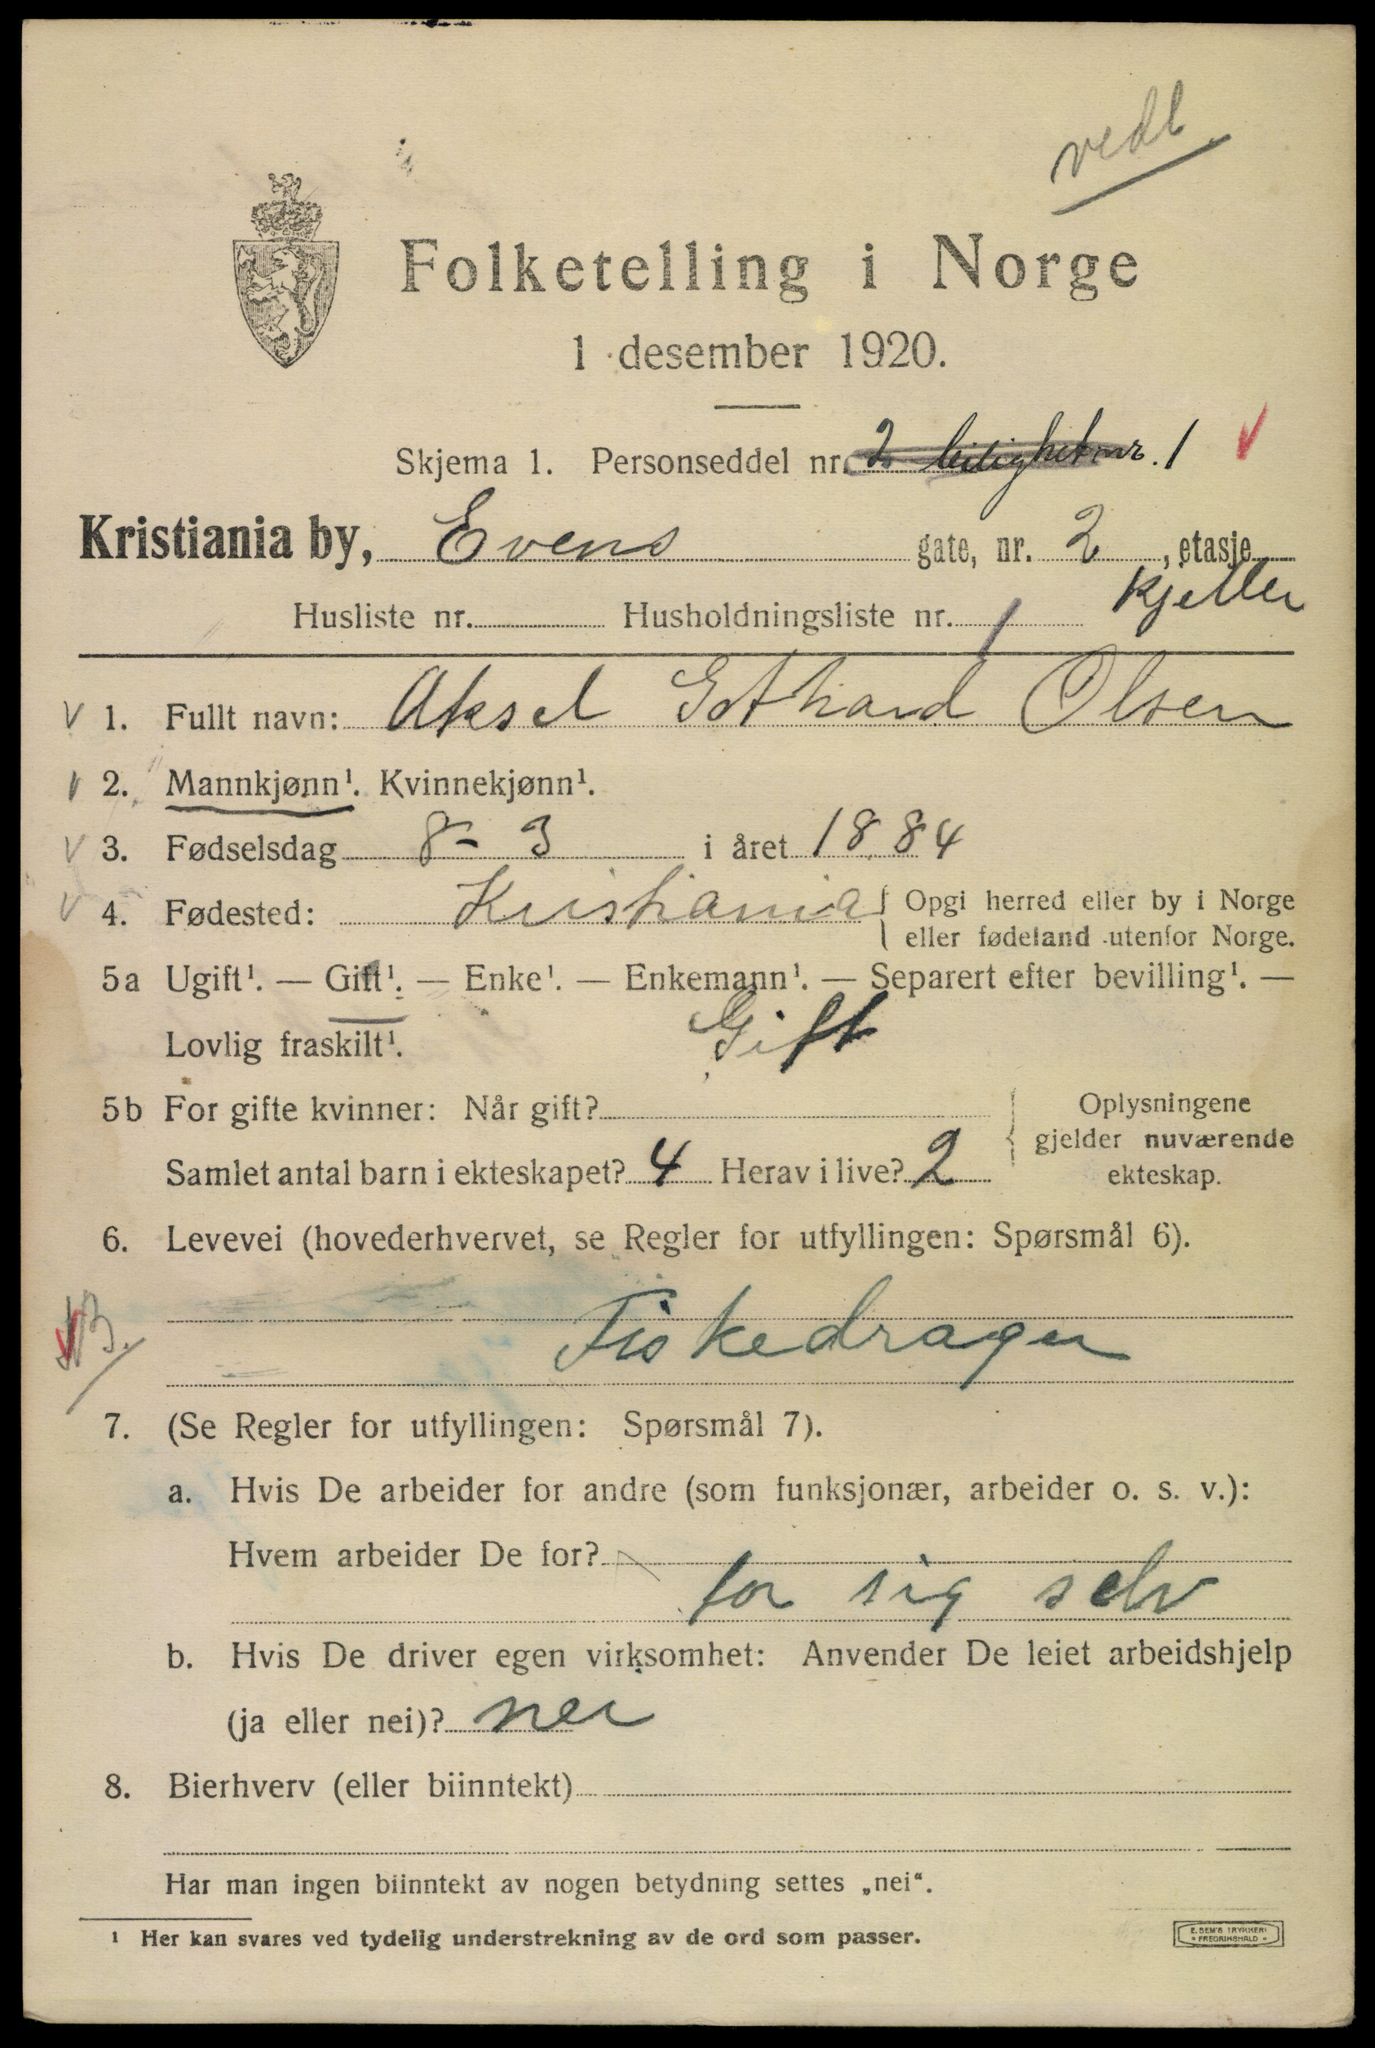 vedl
Folketelling i Norge
1 desember 1920.
Skjema 1. Personseddel nr. 2 leilighet nr. 1
Kristiania by, Evens gate, nr. 2, etasje kjeller
Husliste nr. Husholdningsliste nr. 1
1. Fullt navn: Aksel Gothard Olsen
2. Mannkjønn¹. Kvinnekjønn¹.
3. Fødselsdag 8-3 i året 1884
4. Fødested: Kristiania { Opgi herred eller by i Norge
eller fødeland utenfor Norge.
5a Ugift¹. — Gift¹. — Enke¹. — Enkemann¹. — Separert efter bevilling¹. —
Lovlig fraskilt¹. Gift
5b For gifte kvinner: Når gift? { Oplysningene
gjelder nuværende
Samlet antal barn i ekteskapet? 4 Herav i live? 2 ekteskap.
6. Levevei (hovederhvervet, se Regler for utfyllingen: Spørsmål 6).
Fiskedrager
7. (Se Regler for utfyllingen: Spørsmål 7).
a. Hvis De arbeider for andre (som funksjonær, arbeider o. s. v.):
Hvem arbeider De for?
for sig selv
b. Hvis De driver egen virksomhet: Anvender De leiet arbeidshjelp
(ja eller nei)? nei
8. Bierhverv (eller biinntekt)
Har man ingen biinntekt av nogen betydning settes „nei“.
¹ Her kan svares ved tydelig understrekning av de ord som passer.
E. SEM'S TRYKKERI
FREDRIKSHALD